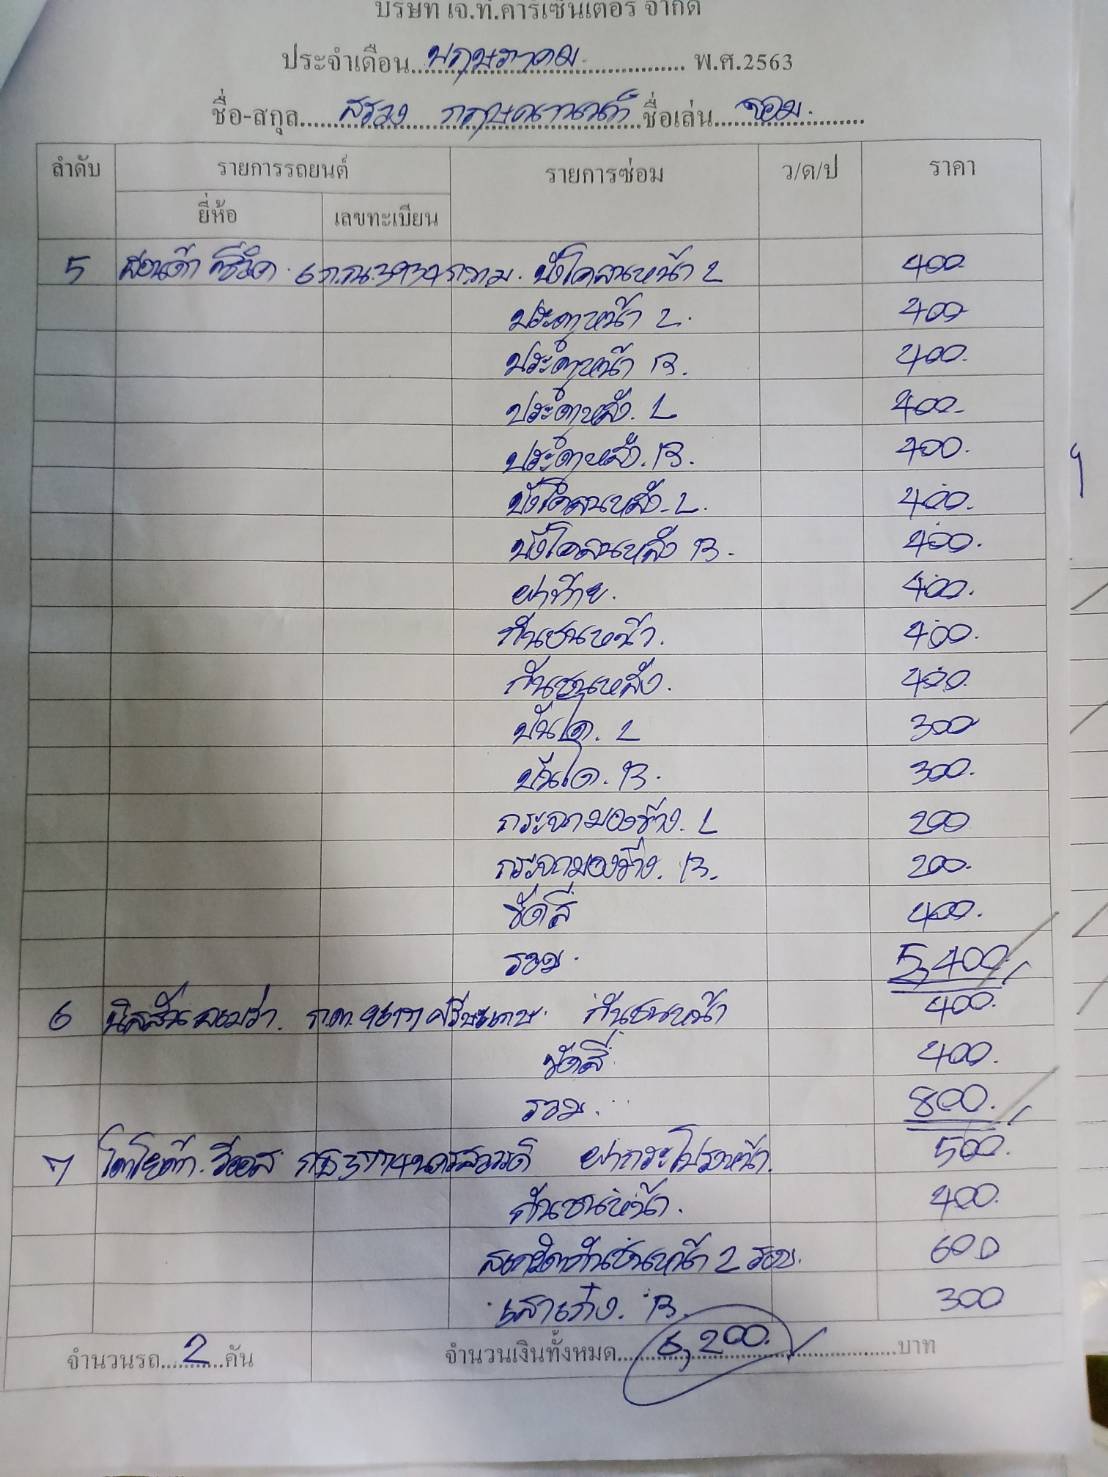 บริษัท เจ.ที.คาร์เซ็นเตอร์ จำกัด
ประจำเดือน พฤษภาคม พ.ศ.2563
ชื่อ-สกุล ชื่อเล่น จอม.
ลำดับ รายการรถยนต์ รายการซ่อม ว/ด/ป ราคา
ยี่ห้อ เลขทะเบียน
5 ฮอนด้า ซีวิค. กทม. บังโคลนหน้า L 400
ประตูหน้า L. 400
ประตูหน้า R. 400.
ประตูหลัง. L 400-
ประตูหลัง. R. 400.
บังโคลนหลัง-L. 400.
บังโคลนหลัง R. 400.
ฝาท้าย. 400.
กันชนหน้า. 400.
กันชนหลัง. 400
บันได. L 300
บันได. R. 300.
กระจกมองข้าง. L 200
กระจกมองข้าง. R. 200.
ขัดสี 400.
รวม. 5,400
6 นิสสัน ศรีษะเกษ. กันชนหน้า 400.
ขัดสี 400.
รวม. 800.
7 โตโยต้า. วีออส นครสวรรค์ ฝากระโปรงหน้า. 500.
กันชนหน้า. 400.
สเกิร์ตกันชนหน้า 2 รอบ. 600
เสาเก๋ง. R. 300
จำนวนรถ 2 คัน จำนวนเงินทั้งหมด 6,200. บาท